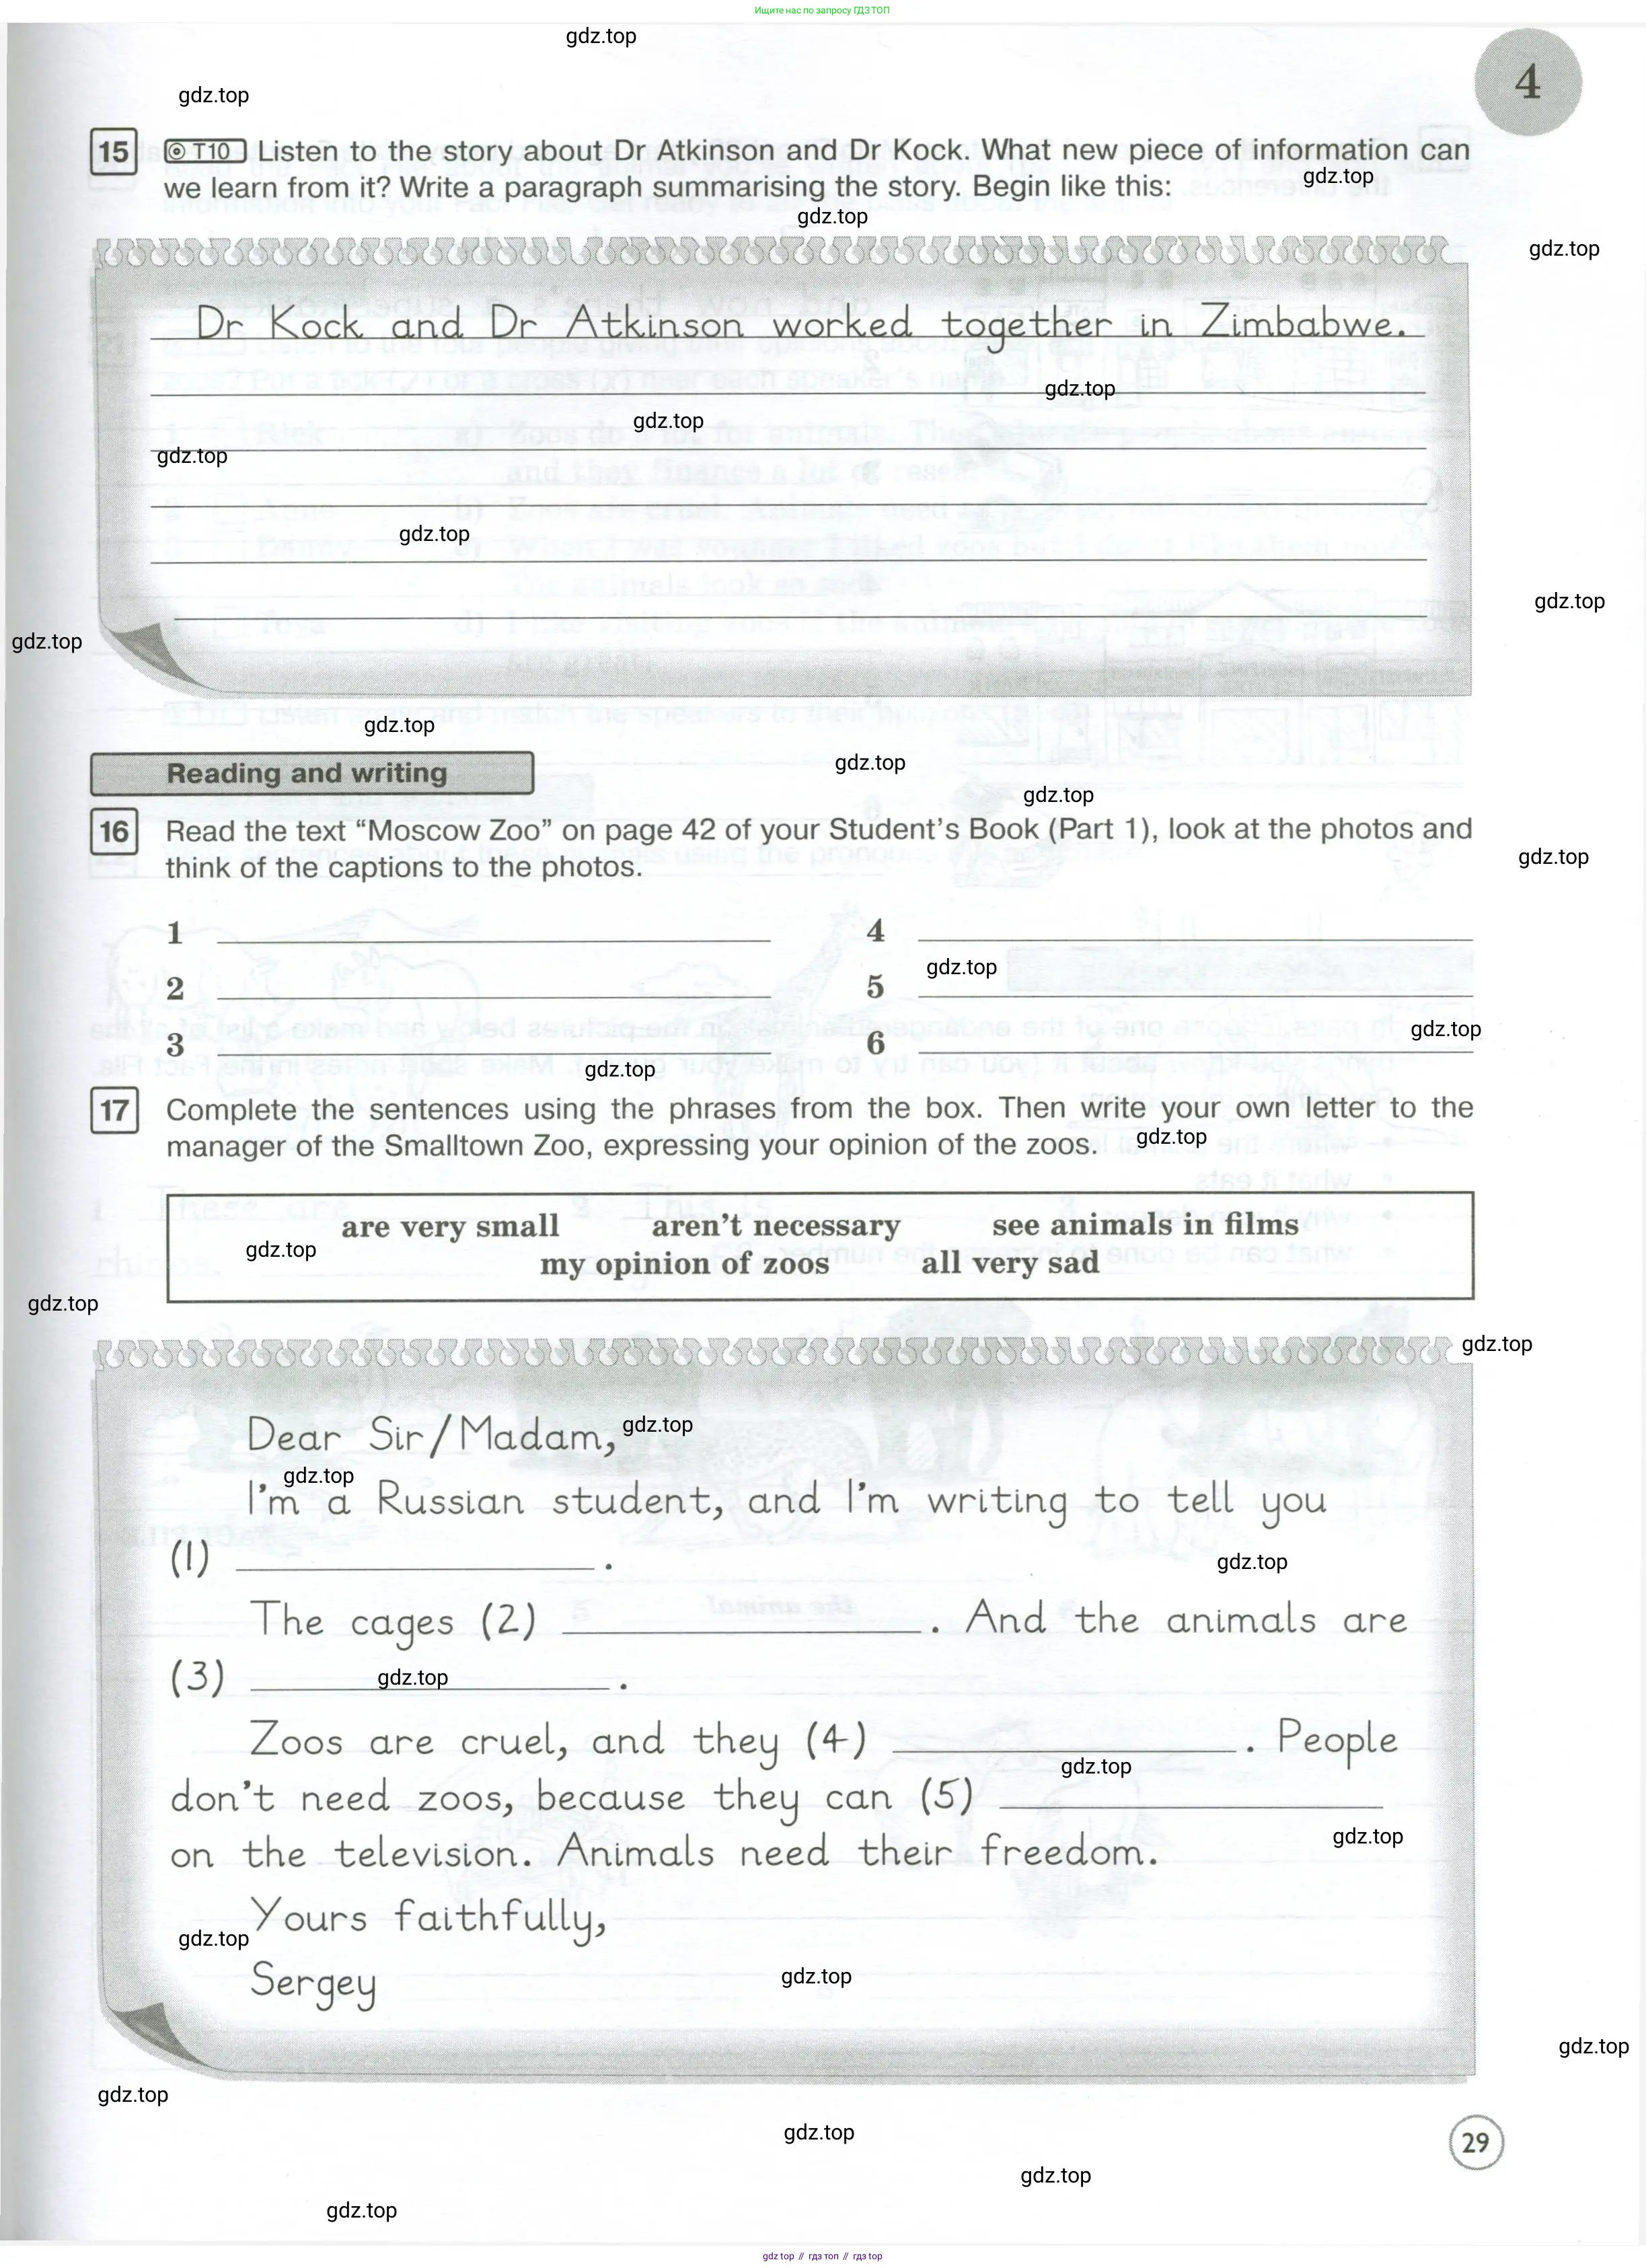 Ищите нас по запросу ГДЗ ТОП
gdz.top
4
gdz.top
15 T10 Listen to the story about Dr Atkinson and Dr Kock. What new piece of information can
we learn from it? Write a paragraph summarising the story. Begin like this:
gdz.top
gdz.top
gdz.top
Dr Kock and Dr Atkinson worked together in Zimbabwe.
gdz.top
gdz.top
gdz.top
gdz.top
gdz.top
gdz.top
gdz.top
gdz.top
Reading and writing
gdz.top
16 Read the text “Moscow Zoo” on page 42 of your Student’s Book (Part 1), look at the photos and
think of the captions to the photos.
gdz.top
1 4
gdz.top
2 5
gdz.top
3 6
gdz.top
17 Complete the sentences using the phrases from the box. Then write your own letter to the
manager of the Smalltown Zoo, expressing your opinion of the zoos.
gdz.top
are very small aren’t necessary see animals in films
gdz.top
my opinion of zoos all very sad
gdz.top
gdz.top
Dear Sir/Madam,
gdz.top
gdz.top
I’m a Russian student, and I’m writing to tell you
(1) .
gdz.top
The cages (2) . And the animals are
(3) .
gdz.top
Zoos are cruel, and they (4) . People
gdz.top
don’t need zoos, because they can (5)
gdz.top
on the television. Animals need their freedom.
Yours faithfully,
gdz.top
Sergey
gdz.top
gdz.top
gdz.top
gdz.top
29
gdz.top
gdz.top
gdz top // гдз топ // гдз top